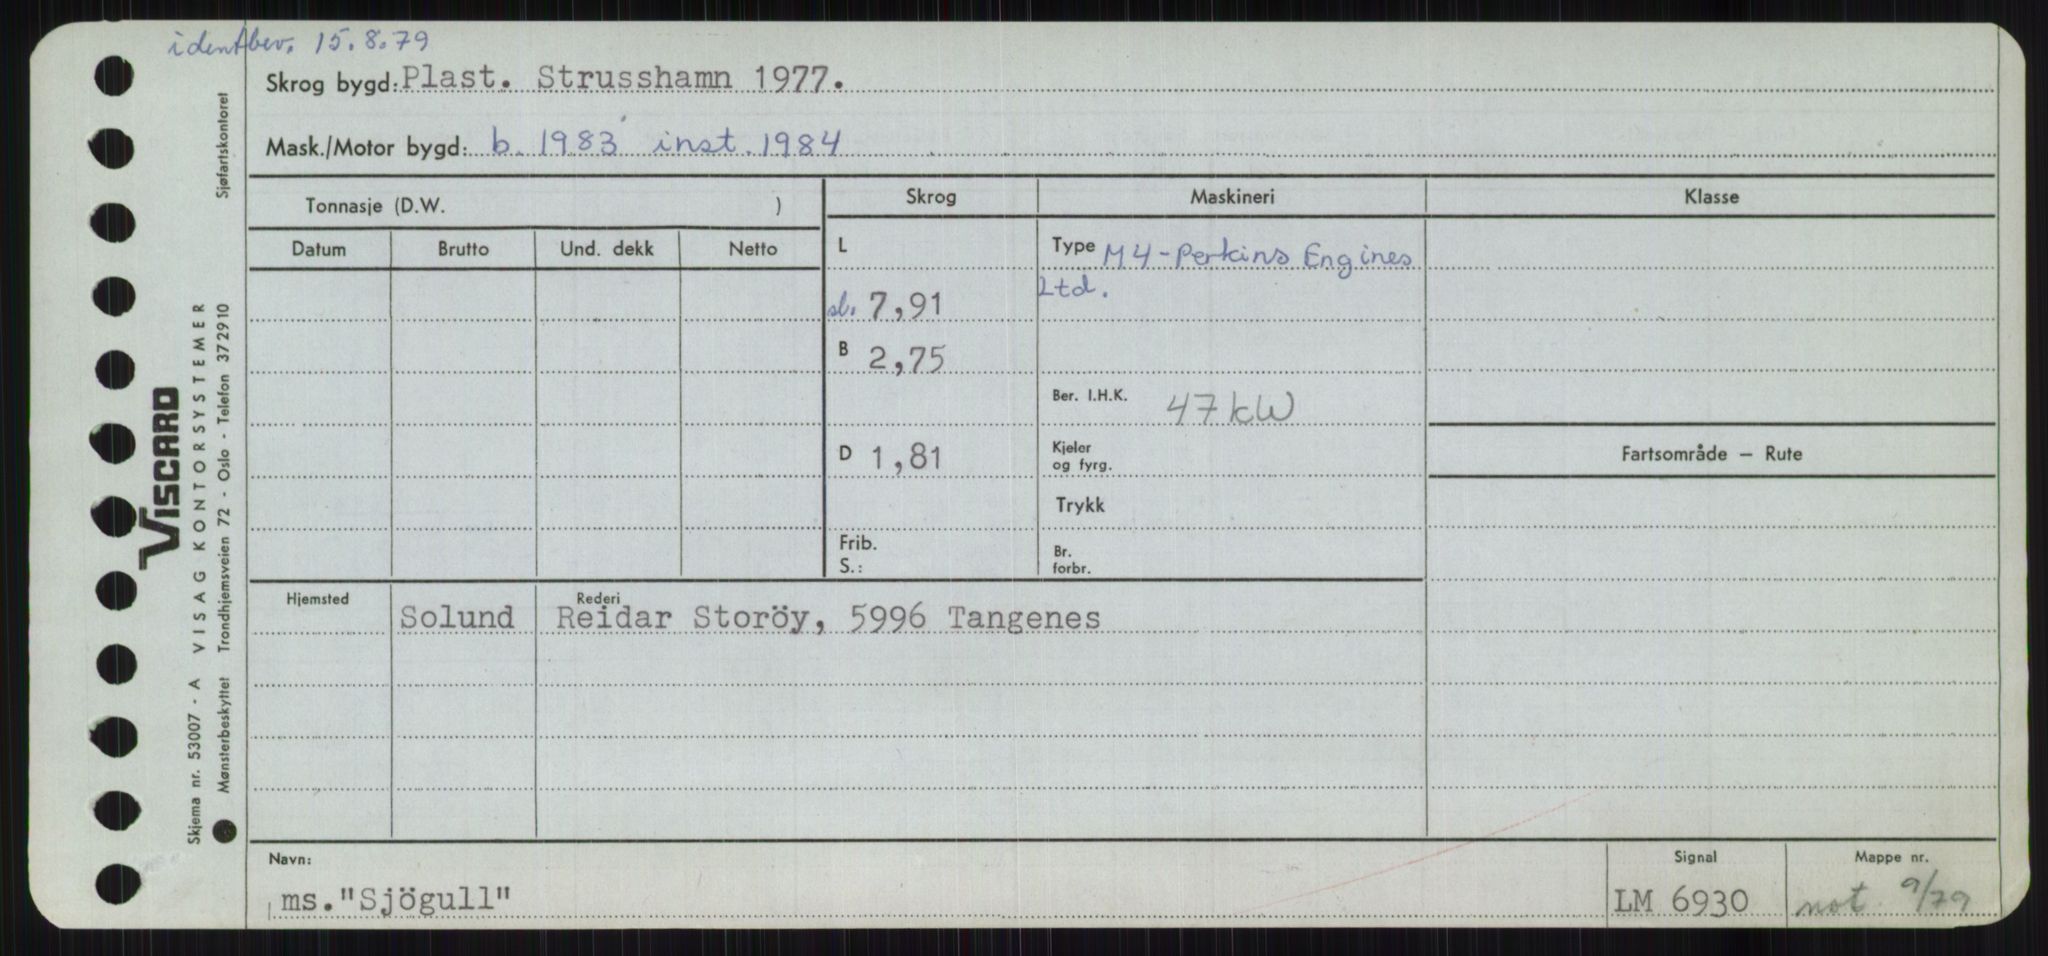 identbev. 15.8.79
Skrog bygd: Plast. Strusshamn 1977.
Mask./Motor bygd: b. 1983 inst. 1984
Tonnasje (D.W. )
Skrog
Maskineri
Klasse
Datum
Brutto
Und. dekk
Netto
L
Type M4-Perkins Engines
Ltd.
sl. 7,91
B 2,75
Ber. I.H.K. 47 kW
D 1,81
Kjeler
og fyrg.
Fartsområde — Rute
Trykk
Frib.
S.:
Br.
forbr.
Hjemsted
Rederi
Solund
Reidar Storöy, 5996 Tangenes
Navn:
ms."Sjögull"
Signal
LM 6930
Mappe nr.
not 9/79
VISCARD
Skjema nr. 53007 - A VISAG KONTORSYSTEMER
Mønsterbeskyttet Trondhjemsveien 72 - Oslo - Telefon 372910 Sjøfartskontoret